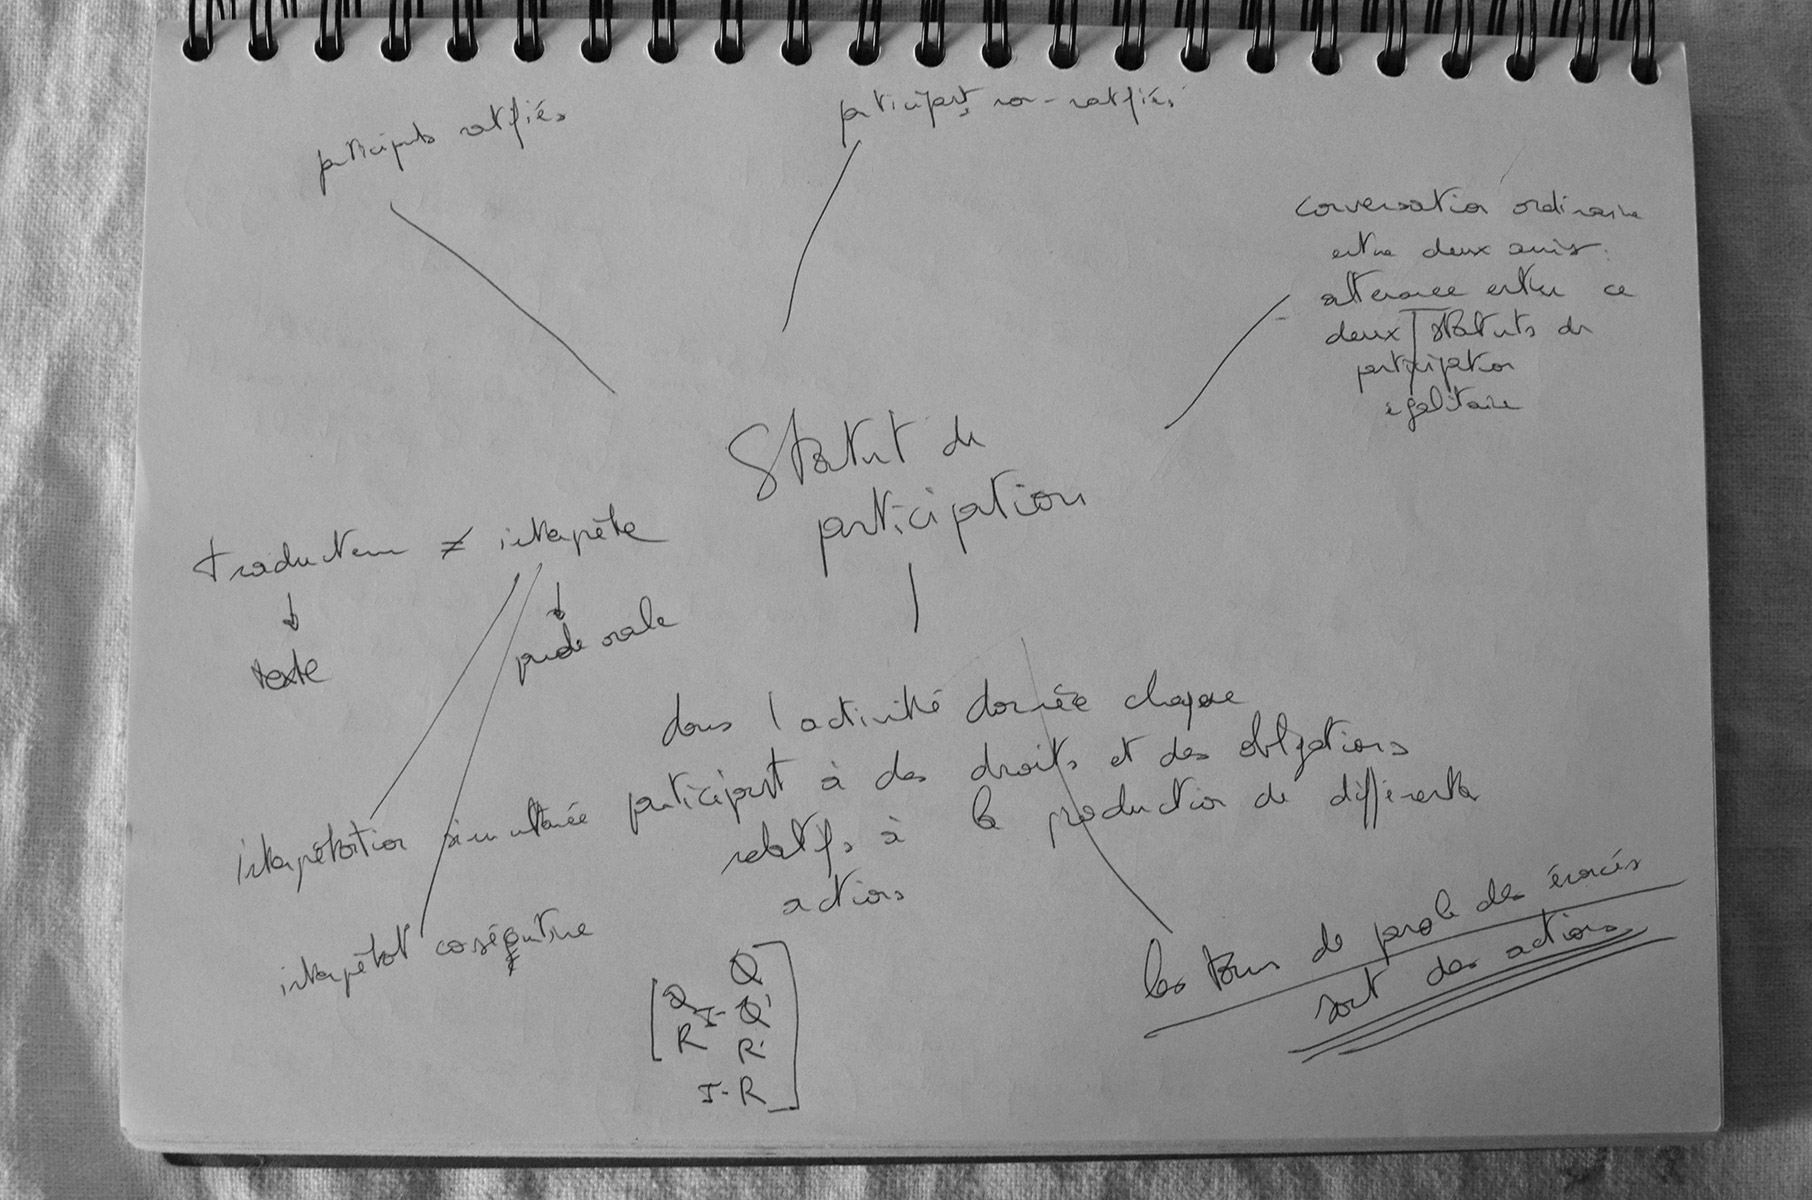 participants ratifiés
participants non-ratifiés
conversation ordinaire
entre deux amis :
alternance entre ce
deux statuts de
participation
égalitaire
Statut de
participation
traducteur ≠ interprète
↓ ↓
texte parole orale
dans l'activité donnée chaque
participant à des droits et des obligations
relatifs à la production de différentes
actions
interprétation simultanée
interprétat° conséqutive
les tours de parole des énoncés
sont des actions
Q
Q I- Q'
R R'
I-R